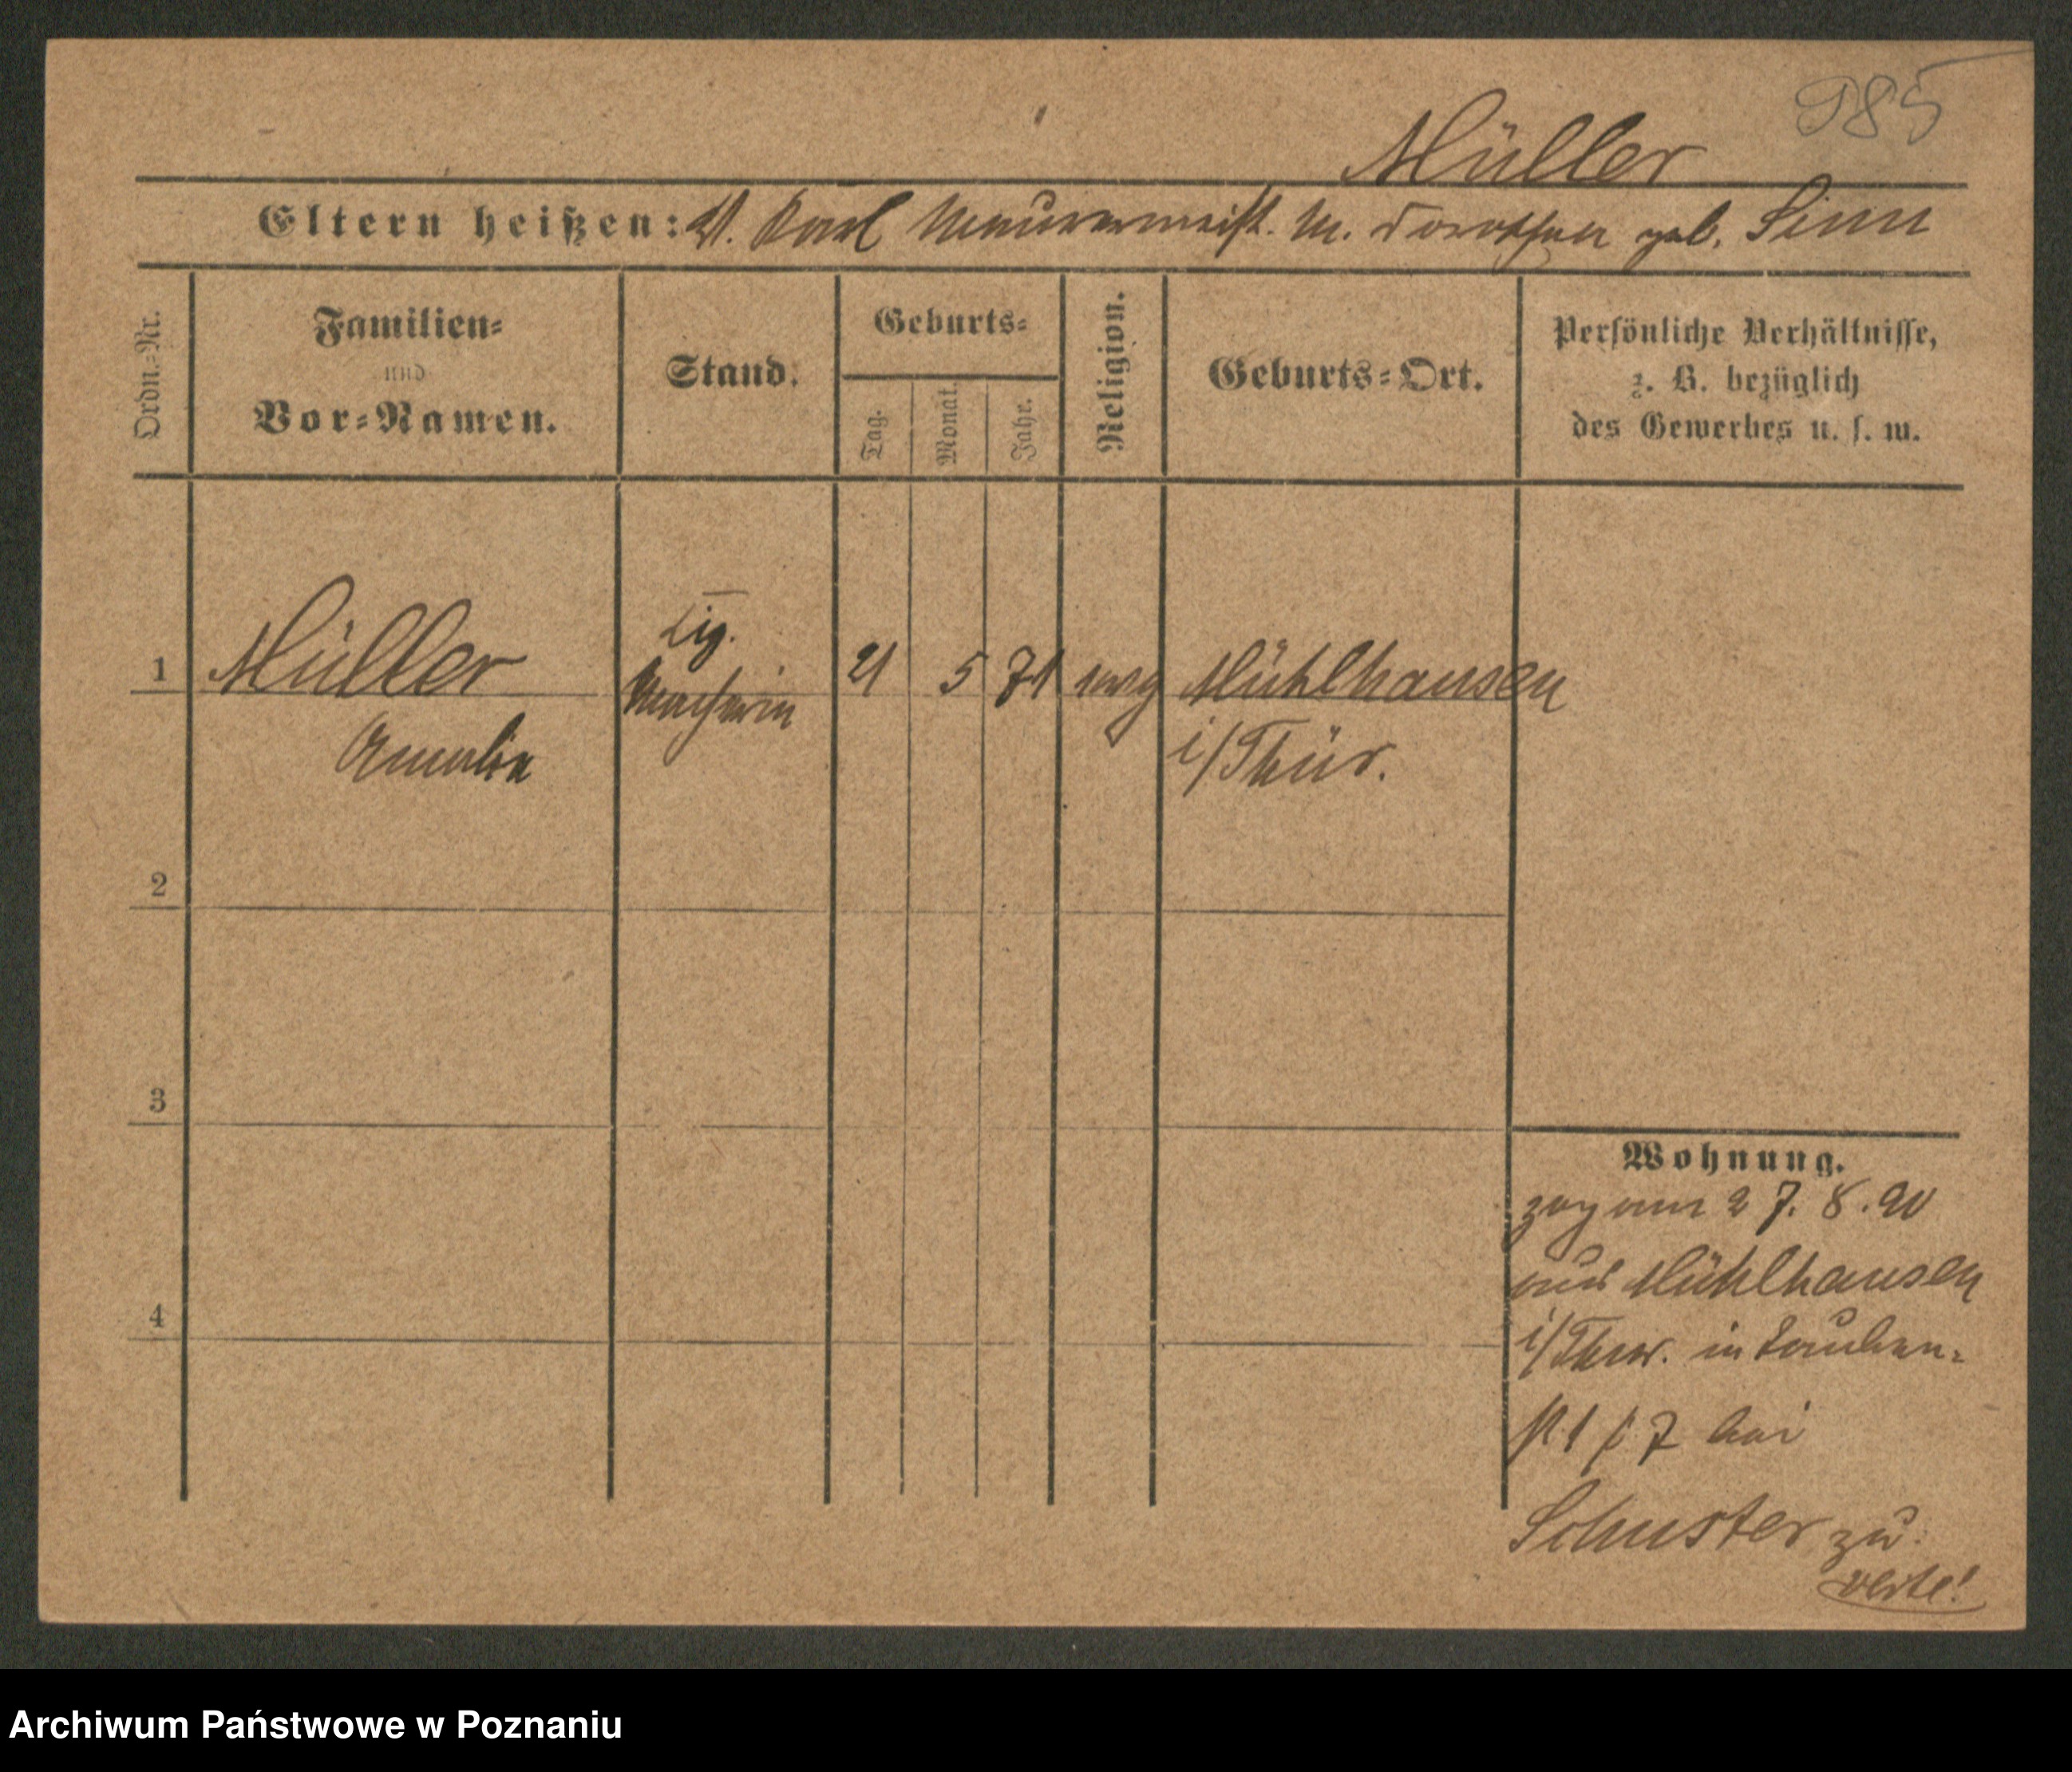 985
Müller
Eltern heißen: V. Karl Maurermeist. M. Dorothea geb. Sinn
Ordn.=Nr.
Familien=
und
Vor=Namen.
Stand.
Geburts=
Tag.
Monat.
Jahr.
Religion.
Geburts=Ort.
Persönliche Verhältnisse,
z. B. bezüglich
des Gewerbes u. s. w.
1 Müller
Amalie
Zig.
Macherin
21 5 71 evg Mühlhausen
i/Thür.
2
3
4
Wohnung.
zog am 27. 8. 90
aus Mühlhausen
i/Thür. in Tauben=
st. 1 / 7 bei
Schuster zu.
verte!
Archiwum Państwowe w Poznaniu